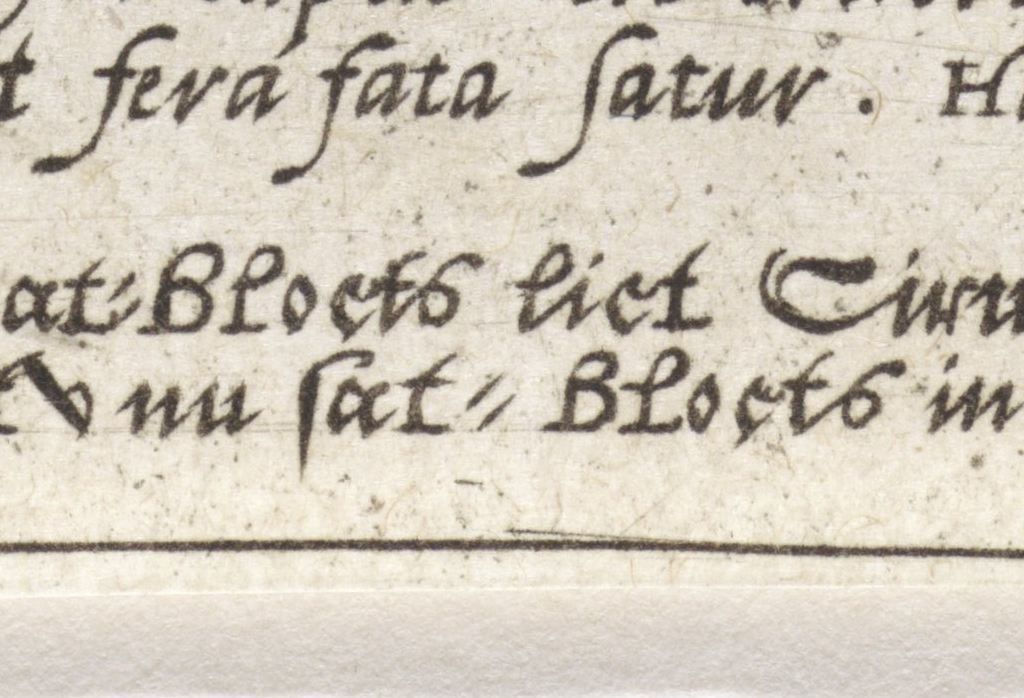 fera fata satur. H
at=Bloets liet Ciru
nu sat= Bloets in